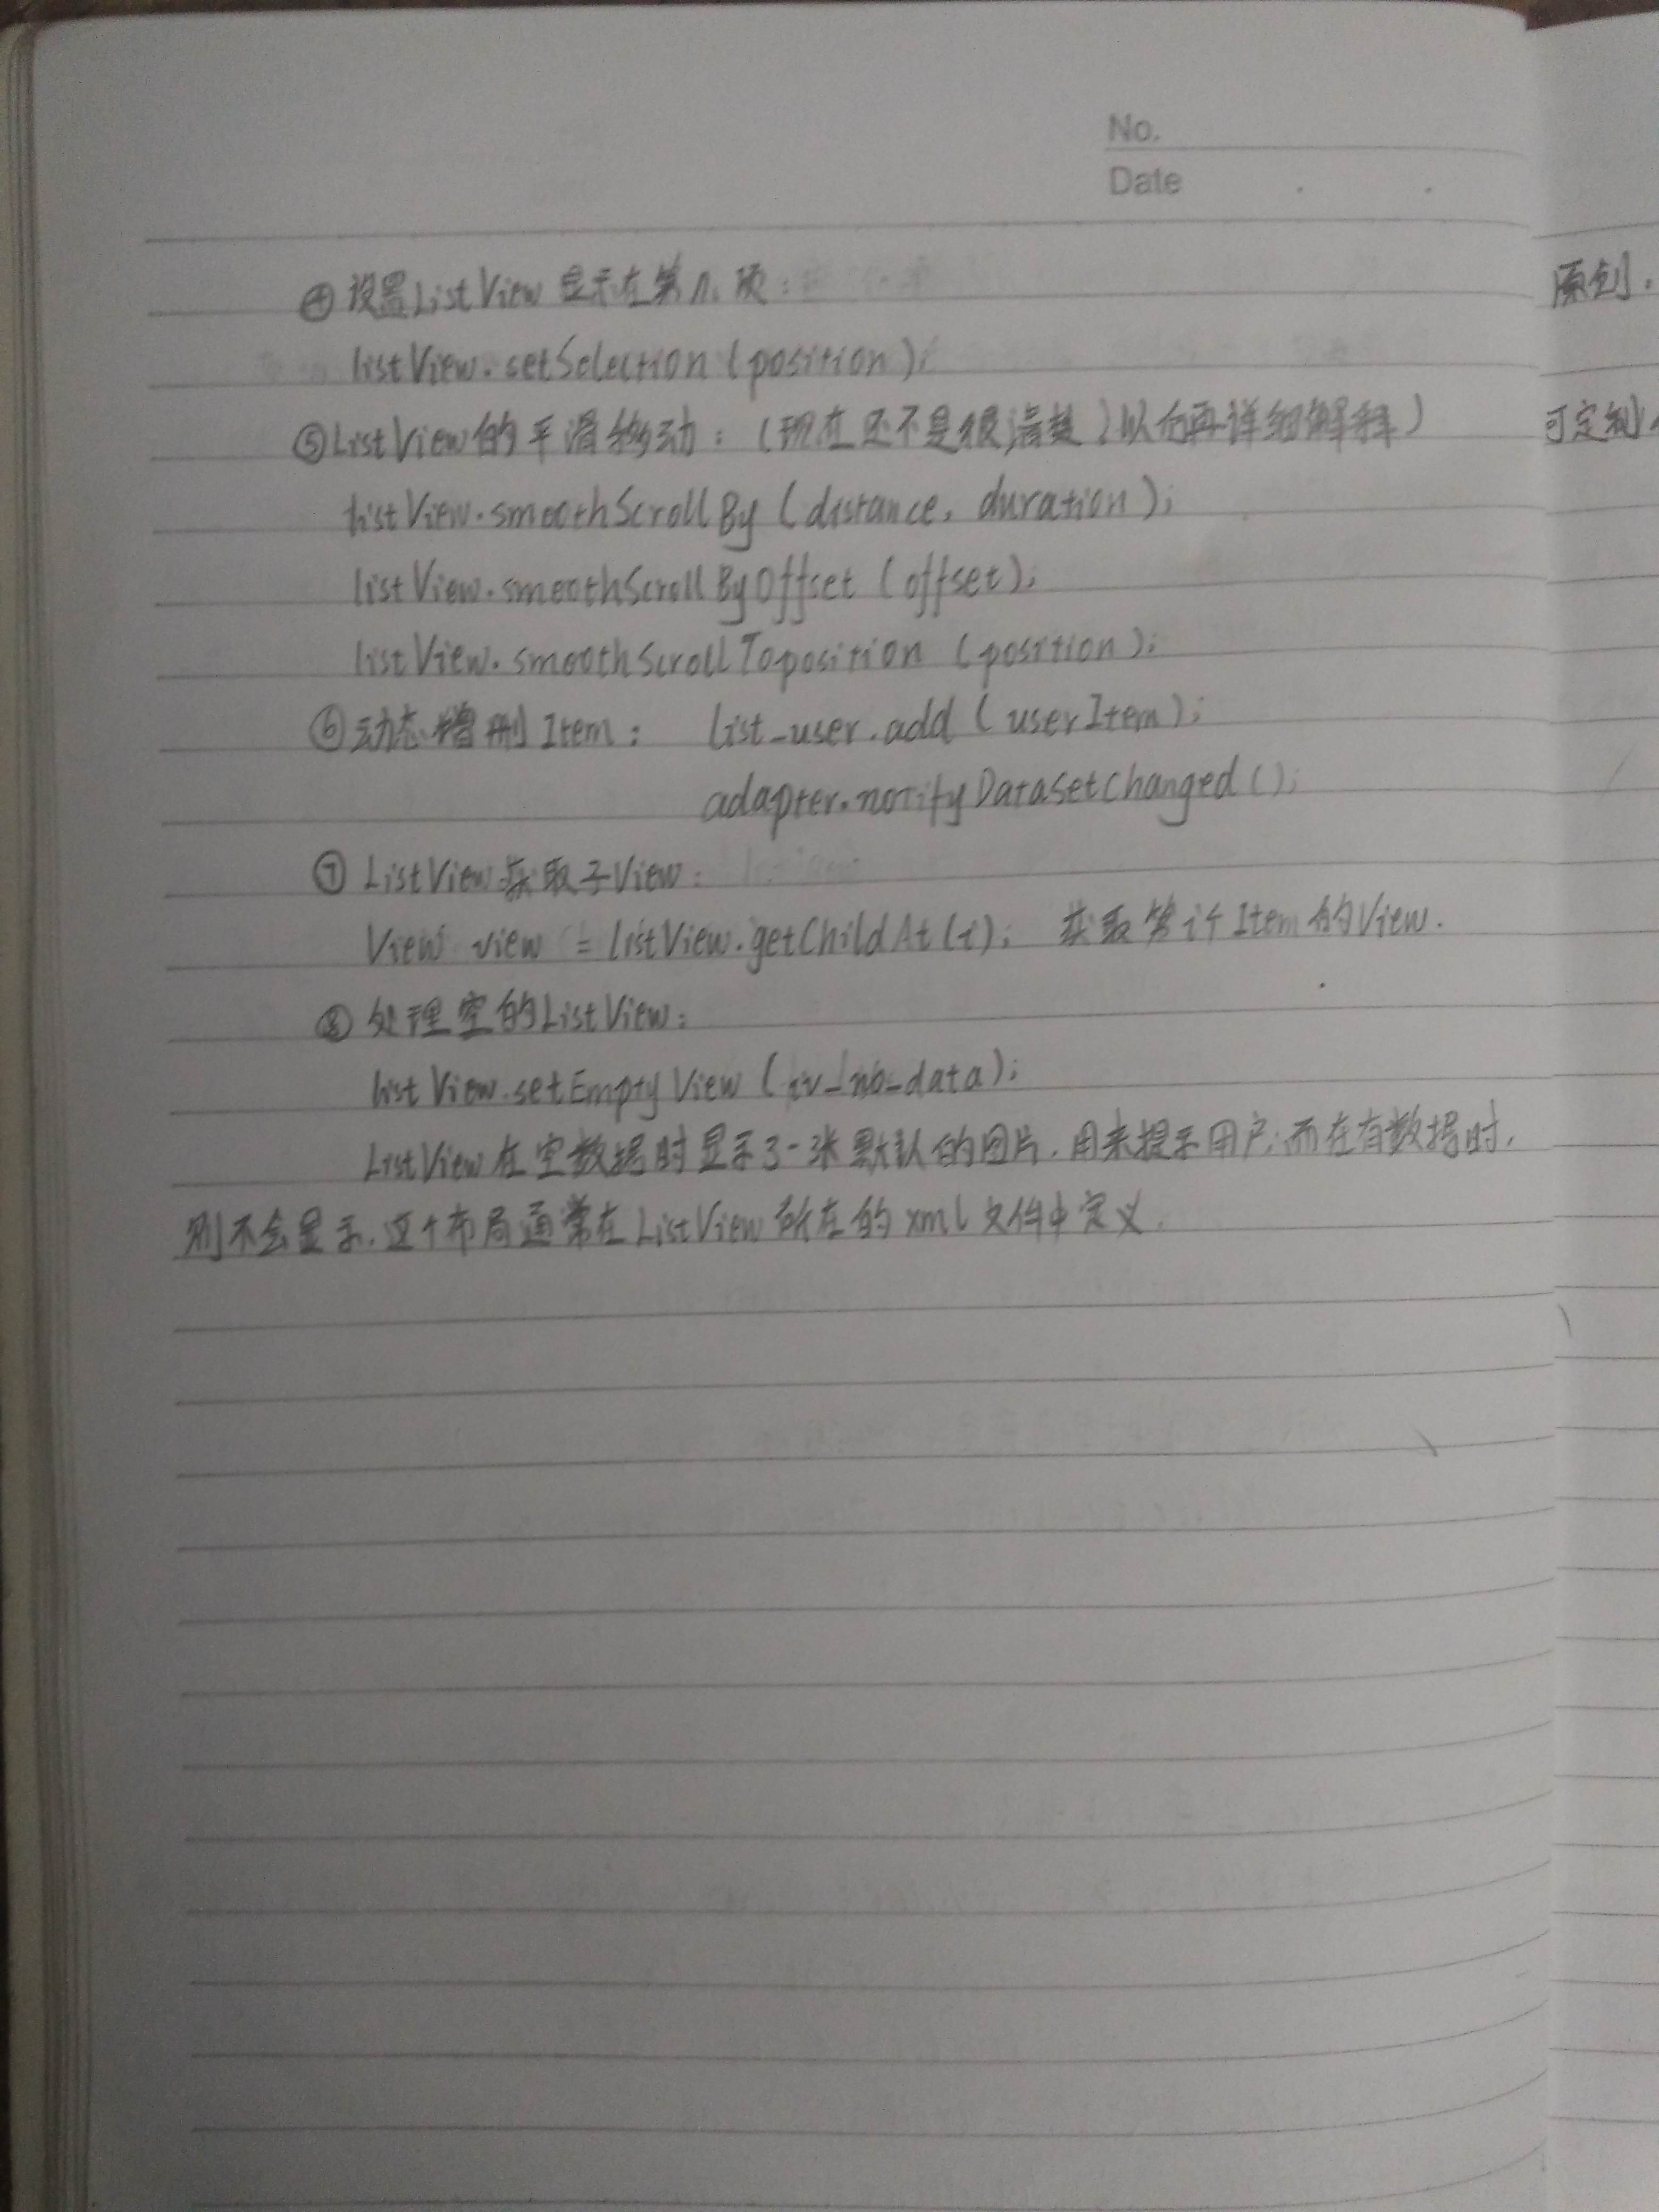 No.
Date
④设置ListView显示在第几项:
listView.setSelection(position);
⑤ListView的平滑移动:(现在还不是很清楚)以后再详细解释)
listView.smoothScrollBy(distance, duration);
listView.smoothScrollByOffset(offset);
listView.smoothScrollToposition(position);
⑥动态增删Item: list_user.add(userItem);
adapter.notifyDataSetChanged();
⑦ListView获取子View:
View view = listView.getChildAt(i); 获取第i个Item的View.
⑧处理空的ListView:
listView.setEmptyView(iv_no_data);
ListView在空数据时显示了一张默认的图片,用来提示用户;而在有数据时,
则不会显示.这个布局通常在ListView所在的xml文件中定义.
原创.
可定制